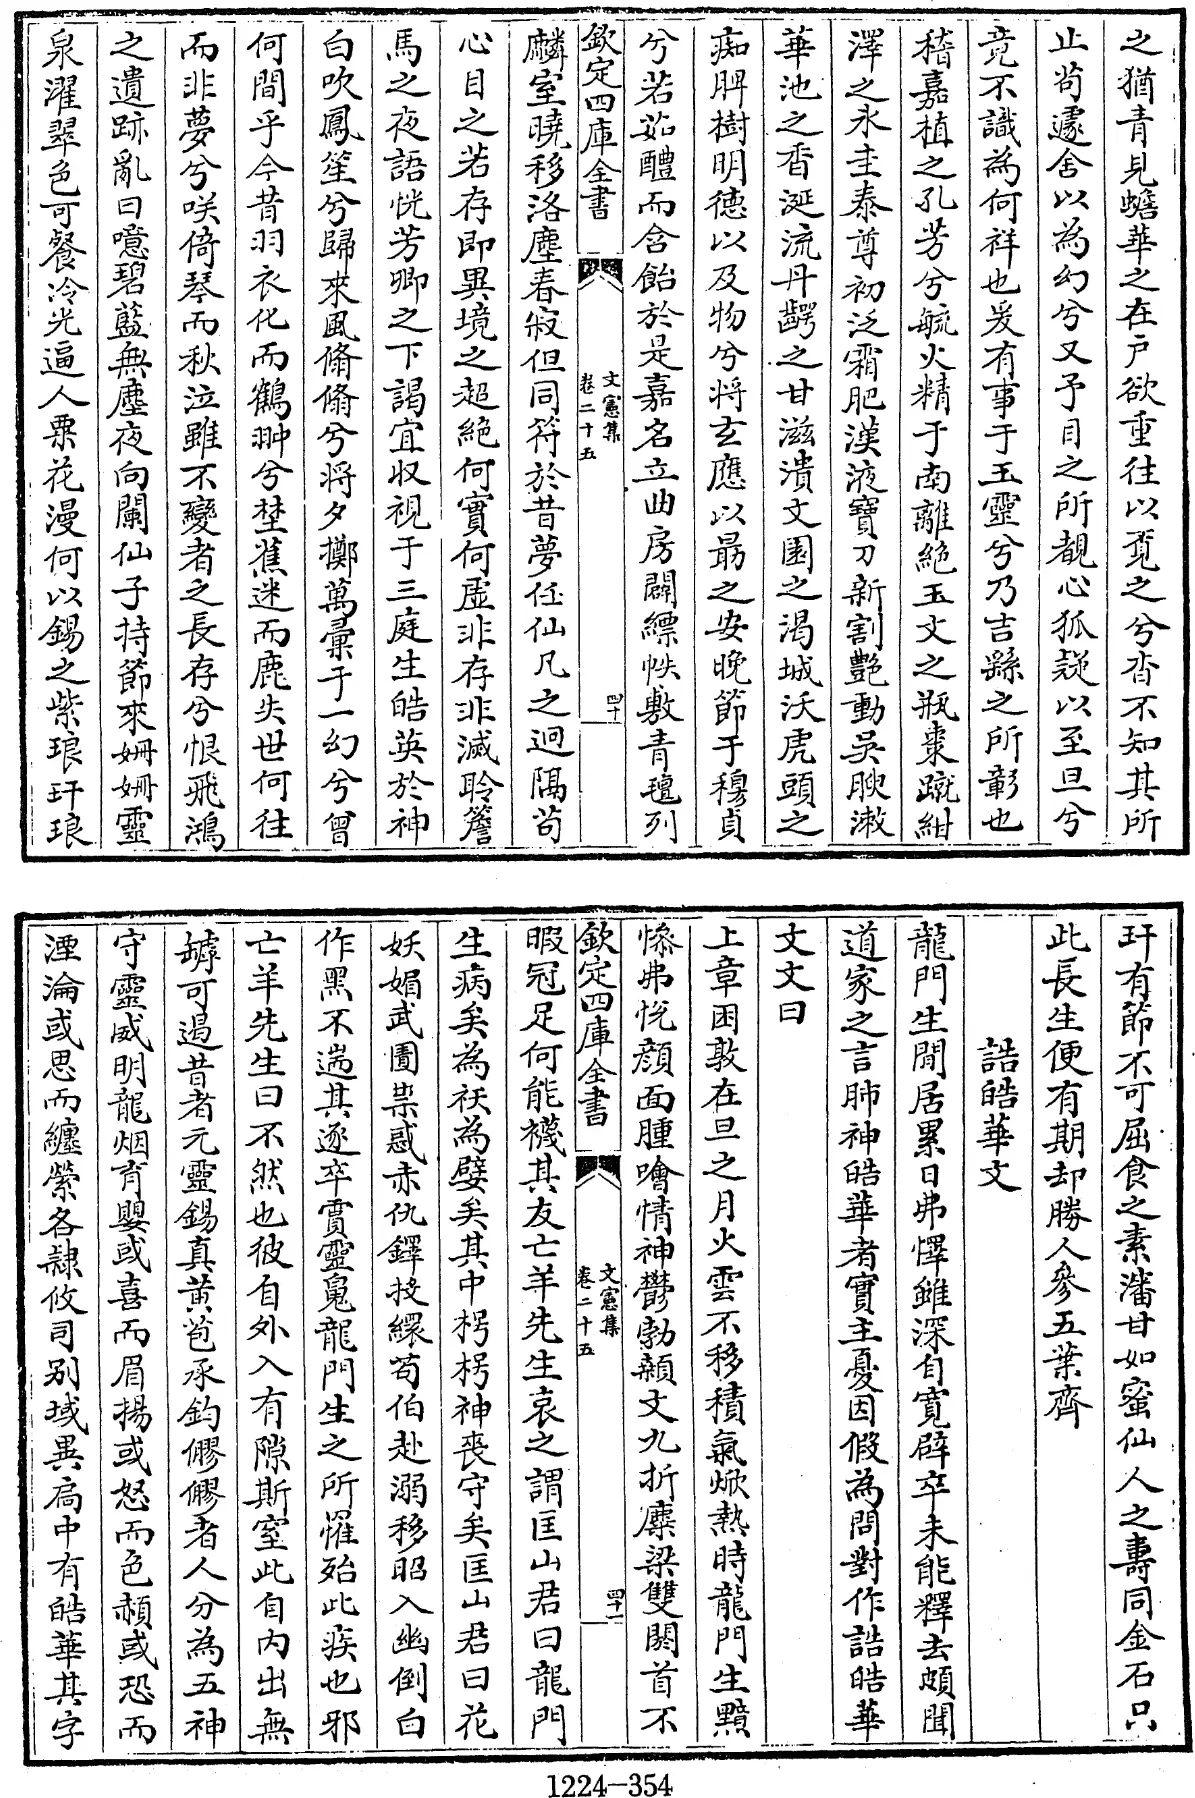 之猶青見蟾華之在戶欲重往以覓之兮杳不知其所
止茍遽舍以為幻兮又予目之所覩心狐疑以至旦兮
竟不識為何祥也爰有事于玉靈兮乃吉繇之所彰也
稽嘉植之孔芳兮毓火精于南離絶玉文之瓶棗蹴紺
澤之永圭泰尊初泛霜肥漢液寶刀新割艷動吳腴漱
華池之香涎流丹齶之甘滋潰文園之渴城沃虎頭之
痴脾樹明徳以及物兮将玄應以最之安晚節于穆貞
兮若茹醴而含飴於是嘉名立曲房闢縹帙敷青氊列
欽定四庫全書
文憲集
卷二十五
四十
麟室曉移洛塵春寂但同符於昔夢任仙凡之迥隔茍
心目之若存即異境之超絶何實何虚非存非滅聆簷
馬之夜語恍芳卿之下謁宜収視于三庭生皓英於神
白吹鳳笙兮歸來風翛翛兮將夕擲萬彚于一幻兮曾
何間乎今昔羽衣化而鶴翀兮埜蕉迷而鹿失世何往
而非夢兮咲倚琴而秋泣雖不變者之長存兮恨飛鴻
之遺跡亂曰噫碧藍無塵夜向闌仙子持節來姍姍靈
泉濯翠色可餐冷光逼人粟花漫何以錫之紫琅玕琅
玕有節不可屈食之素瀋甘如蜜仙人之壽同金石只
此長生便有期却勝人參五葉齊
詰皓華文
龍門生閒居累日弗懌雖深自寛辟卒未能釋去頗聞
道家之言肺神皓華者實主憂因假為問對作詰皓華
文文曰
上章困敦在旦之月火雲不移積氣焮熱時龍門生黯
慘弗恱顔面腫噲情神鬱勃顙文九折麋梁雙閼首不
欽定四庫全書
文憲集
卷二十五
四十一
暇冠足何能襪其友亡羊先生哀之謂匡山君曰龍門
生病矣為祅為孽矣其中枵枵神喪守矣匡山君曰花
妖媚武圉祟惑赤仇鐸挍繯茍伯赴溺移昭入幽倒白
作黑不遄其逐卒賈靈㲋龍門生之所懼殆此疾也邪
亡羊先生曰不然也彼自外入有隙斯窒此自内出無
罅可遏昔者元靈錫真黄苞承鈞㺒㺒者人分為五神
守靈威明龍烟育嬰或喜而眉揚或怒而色赬或恐而
湮淪或思而纏縈各隷攸司别域異扃中有皓華其字
1224—354